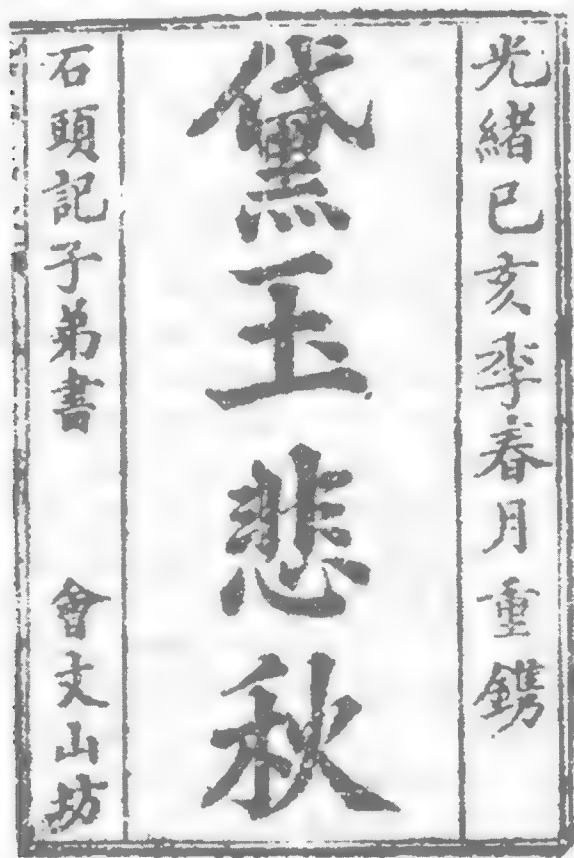 光緒己亥季春月重鐫
黛玉悲秋
石頭記子弟書 會文山坊